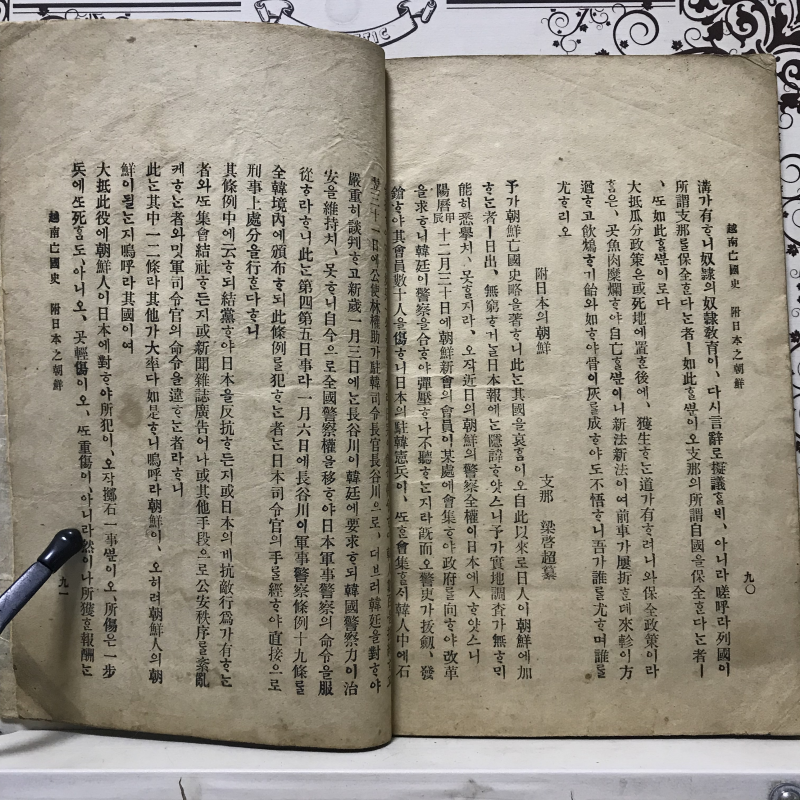 越南亡國史 附日本之朝鮮
九〇
溝가有ᄒᆞ니奴隷의奴隷敎育이、다시言辭로擬議ᄒᆞᆯ비、아니라嗟呼라列國이
所謂支那를保全ᄒᆞᆫ다ᄂᆞᆫ者ㅣ如此ᄒᆞᆯᄲᅮᆫ이오支那의所謂自國을保全ᄒᆞᆫ다ᄂᆞᆫ者ㅣ
、ᄯᅩ如此ᄒᆞᆯᄲᅮᆫ이로다
大抵瓜分政策은或死地에置ᄒᆞᆫ後에、獲生ᄒᆞᄂᆞᆫ道가有ᄒᆞ려니와保全政策이라
ᄒᆞᆷ은、곳魚肉糜爛ᄒᆞ야自亡ᄒᆞᆯᄲᅮᆫ이니新法新法이여前車가屢折ᄒᆞᆫ데來軫이方
遒ᄒᆞ고飮鴆ᄒᆞ기飴와如ᄒᆞ야骨이灰를成ᄒᆞ야도不悟ᄒᆞ니吾가誰를尤ᄒᆞ며誰를
尤ᄒᆞ리오
附日本의朝鮮
支那 梁啓超纂
予가朝鮮亡國史略을著ᄒᆞ니此ᄂᆞᆫ其國을哀ᄒᆞᆷ이오自此以來로日人이朝鮮에加
ᄒᆞᄂᆞᆫ者ㅣ日出、無窮ᄒᆞ거ᄂᆞᆯ日本報에ᄂᆞᆫ隱諱ᄒᆞ얏스니予가實地調査가無ᄒᆞ미
能히悉擧치、못ᄒᆞᆯ지라、오작近日의朝鮮의警察全權이日本에入ᄒᆞ얏스니
陽曆甲辰十二月三十日에朝鮮新會의會員이某處에會集ᄒᆞ야政府를向ᄒᆞ야改革
을求ᄒᆞ니韓廷이警察을合ᄒᆞ야彈壓ᄒᆞ나不聽ᄒᆞᄂᆞᆫ지라旣而오警吏가拔劒、發
鎗ᄒᆞ야其會員數十人을傷ᄒᆞ니日本의駐韓憲兵이、ᄯᅩᄒᆞᆫ會集ᄒᆞᆯᄉᆡ韓人中에石
越南亡國史 附日本之朝鮮
九一
三十一日에公使林權助가駐韓司令長官長谷川으로、더브러韓廷을對ᄒᆞ야
嚴重히談判ᄒᆞ고新歲一月三日에ᄂᆞᆫ長谷川이韓廷에要求ᄒᆞ되韓國警察力이治
安을維持치、못ᄒᆞ니自今으로全國警察權을移ᄒᆞ야日本軍事警察의命令을服
從ᄒᆞ라ᄒᆞ니此ᄂᆞᆫ第四第五日事라一月六日에長谷川이軍事警察條例十九條를
全韓境內에頒布ᄒᆞ되此條例를犯ᄒᆞᄂᆞᆫ者ᄂᆞᆫ日本司令官의手를經ᄒᆞ야直接으로
刑事上處分을行ᄒᆞᆫ다ᄒᆞ니
其條例中에云ᄒᆞ되結黨ᄒᆞ야日本을反抗ᄒᆞ든지或日本의게抗敵行爲가有ᄒᆞᄂᆞᆫ
者와ᄯᅩ集會結社ᄒᆞ든지或新聞雜誌廣告어나或其他手段으로公安秩序를紊亂
케ᄒᆞᄂᆞᆫ者와밋軍司令官의命令을違ᄒᆞᄂᆞᆫ者라ᄒᆞ니
此ᄂᆞᆫ其中一二條라其他가大率다如是ᄒᆞ니嗚呼라朝鮮이、오히려朝鮮人의朝
鮮이될ᄂᆞᆫ지嗚呼라其國이여
大抵此役에朝鮮人이日本에對ᄒᆞ야所犯이、오작擲石一事ᄲᅮᆫ이오、所傷은一步
兵에ᄯᅩ死ᄒᆞᆷ도아니오、곳輕傷이오、ᄯᅩ重傷이、아니라然이나所獲ᄒᆞᆫ報酬ᄂᆞᆫ